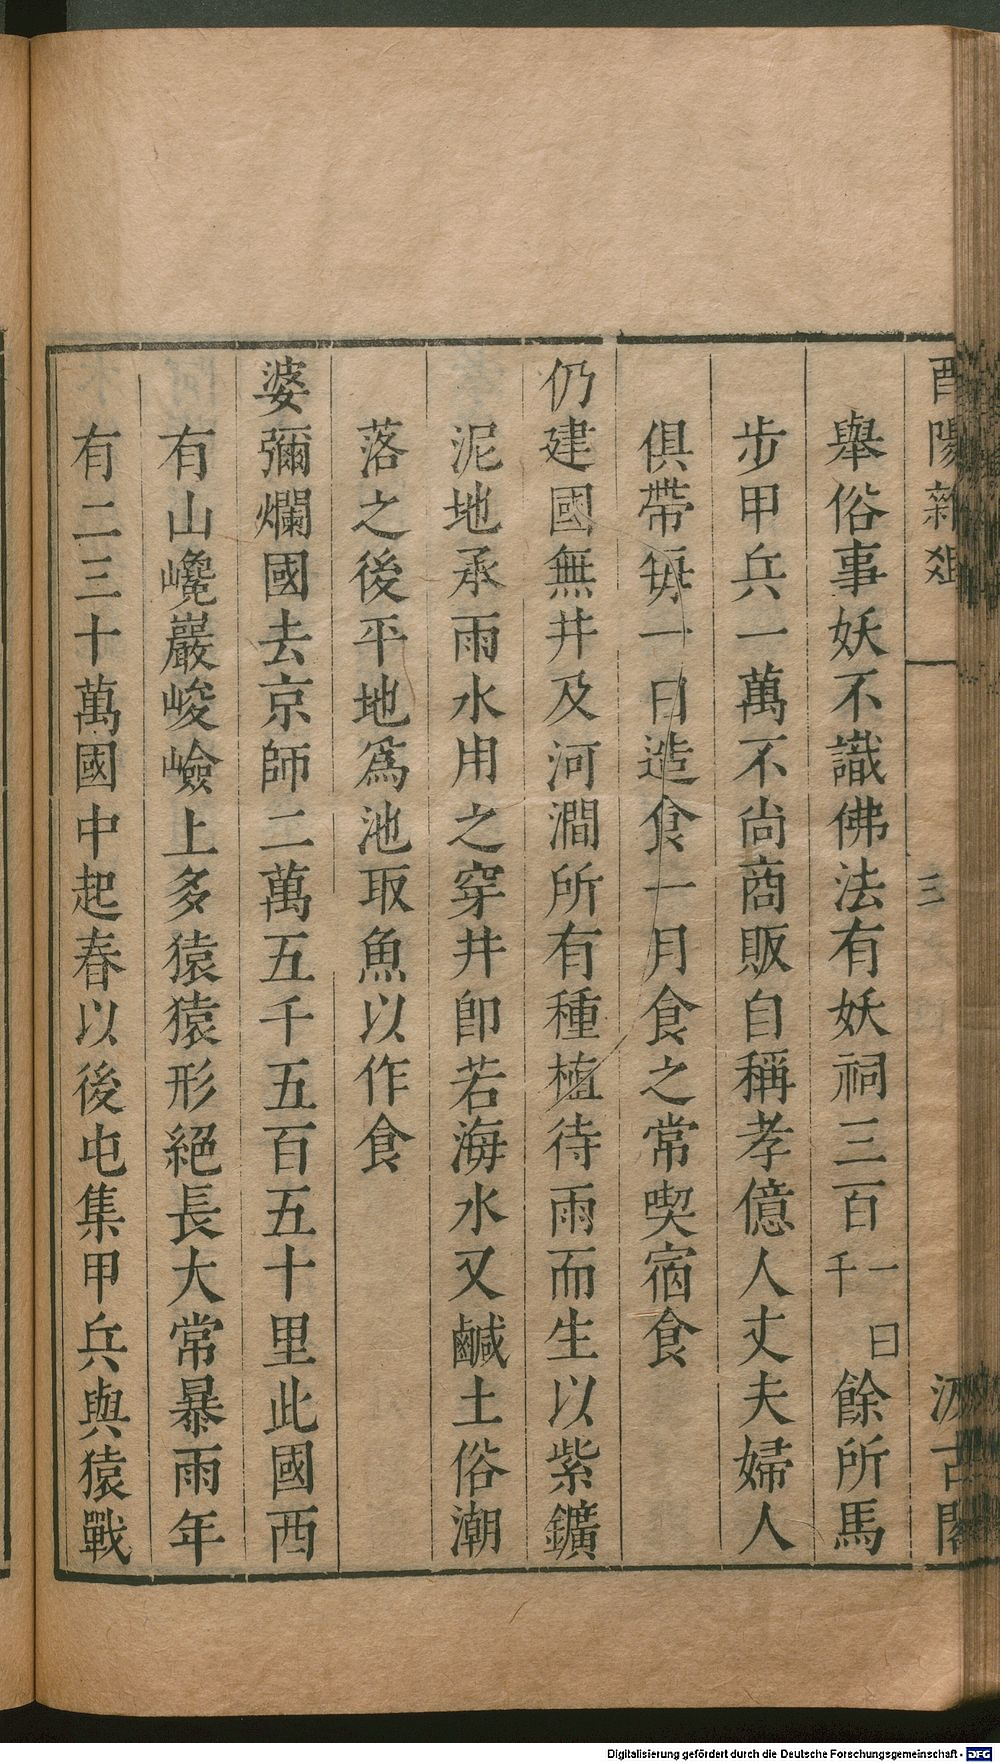 酉陽雜俎
三
汲古閣
舉俗事妖不識佛法有妖祠三百一曰千餘所馬
步甲兵一萬不尚商販自稱孝億人丈夫婦人
俱帶每一日造食一月食之常喫宿食
仍建國無井及河澗所有種植待雨而生以紫鑛
泥地承雨水用之穿井卽若海水又鹹土俗潮
落之後平地爲池取魚以作食
婆彌爛國去京師二萬五千五百五十里此國西
有山巉巖峻嶮上多猿猿形絕長大常暴雨年
有二三十萬國中起春以後屯集甲兵與猿戰
Digitalisierung gefördert durch die Deutsche Forschungsgemeinschaft - DFG